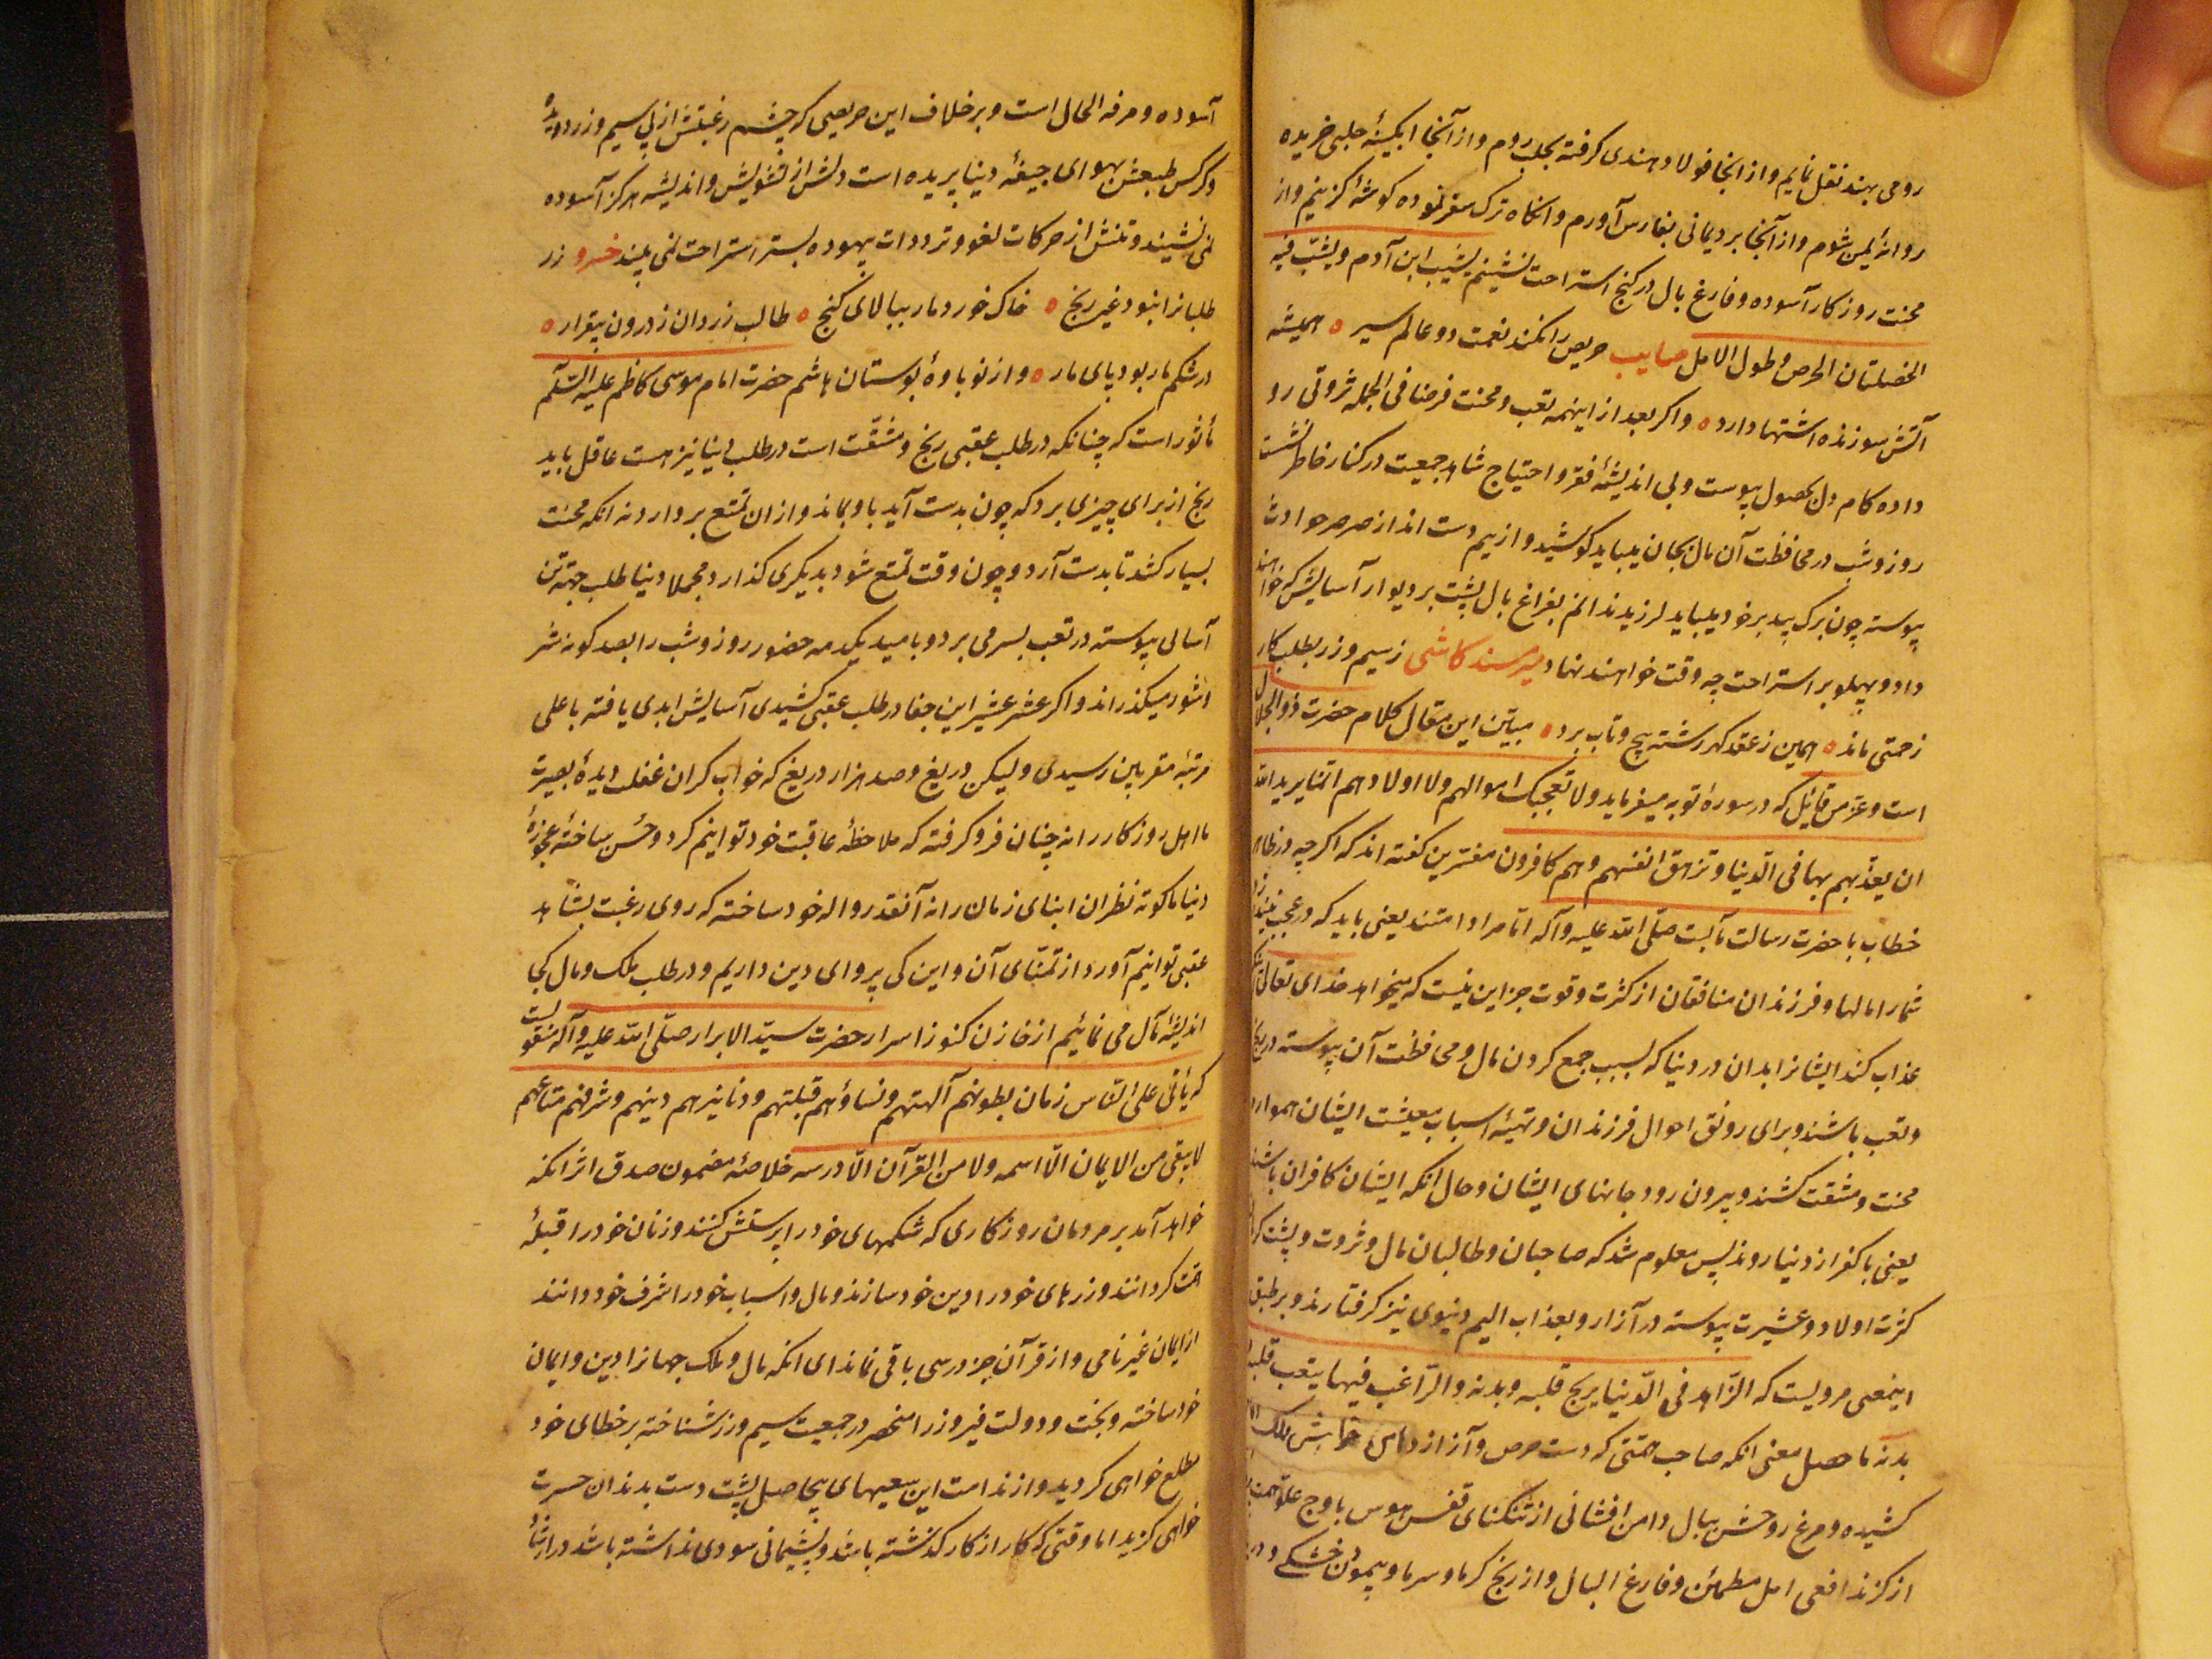 رومی بهند نقل نمایم و از انجا فولاد هندی کرفته بحلب روم و از آنجا ابکینهٔ حلبی خریده
روانهٔ یمن شوم و از آنجا برد یمانی بفارس آورم و انکاه ترک سفر نموده کوشهٔ کزینم و از
محنت روزکار آسوده و فارغ بال در کنج استراحت نشینم یشیب ابن آدم و یشب فیه
الخصلتان الحرص و طول الامل صایب حریص را نکند نعمت دو عالم سیر ه همیشه
آتش سوزنده اشتها دارد ه و اکر بعد از اینهمه تعب و محنت فرضا فی الجمله ثروتی رو
داده کام دل بحصول پیوست و بی اندیشهٔ فقر و احتیاج شاهد جمعیت در کنار خاطر نشست
روز و شب در محافظت آن مال بجان یباید کوشید و از بیم دست انداز صرصر حوادث
پیوسته چون برک بید بر خود یباید لرزید ندانم بفراغ بال پشت بر دیوار آسایش که خواهند
داد و پهلو بر استراحت چه وقت خواهند نهاد میر سند کاشی ز سیم و زر بطلب کار
زحمتی ماند ه همین ز عقد کهر رشته پیچ و تاب برد ه مبیّن این مقال کلام حضرت ذوالجلال
است و عزّ من قایل که در سورهٔ توبه میفرماید ولا تعجبک اموالهم ولا اولادهم انّما یرید الله
ان یعذّبهم بها فی الدّنیا و تزهق انفسهم و هم کافرون مفسّرین کفته اند که اکرچه در ظاهر
خطاب با حضرت رسالت مآبست صلّی الله علیه و آله امّا مراد امتند یعنی باید که در عجب
شمارا مالها و فرزندان منافقان از کثرت و قوت جز این نیست که میخواهد خدای تعالی
عذاب کند ایشانرا بدان در دنیا که بسبب جمع کردن مال و محافظت آن پیوسته در رنج
و تعب باشند و برای رونق احوال فرزندان و تهیّهٔ اسباب معیشت ایشان همواره
محنت و مشقت کشند و بیرون رود جانهای ایشان و حال آنکه ایشان کافران باشند
یعنی با کفر از دنیا روند پس معلوم شد که صاحبان و طالبان مال و ثروت و پشت
کثرت اولاد و عشیرت پیوسته در آزار و بعذاب الیم دنیوی نیز کرفتارند و بر طبق
اینمعنی مرویست که الزّاهد فی الدّنیا یریح قلبه و بدنه و الرّاغب فیها یتعب قلبه
بدنه ماحصل معنی انکه صاحب همّتی که دست حرص و آز از دامن خواهش ملک
کشیده و مرغ روحش ببال دامن افشانی از تنکنای قفس هوس باوج علوّ همت
از کزند افعی امل مطمئن و فارغ البال و از رنج کرما و سرما و پیمودن خشکی و
آسوده و مرفه الحال است و بر خلاف این حریصی که چشم رغبتش از پی سیم و زر دویده
و کرکس طبعش بهوای جیفهٔ دنیا پریده است دلش از تشویش و اندیشه هرکز آسوده
نمی نشیند و تنش از حرکات لغو و ترددات بیهوده بستر استراحت نمی بیند خسرو زر
طلبانرا نبود غیر رنج ه خاک خورد مار ببالای کنج ه طالب زر دان ز درون بیقرار ه
در شکم مار بود پای مار ه و از نوباوهٔ بوستان هاشم حضرت امام موسی کاظم علیه السّلام
مأثور است که چنانکه در طلب عقبی رنج و مشقّت است در طلب دنیا نیز هست عاقل باید
رنج از برای چیزی برد که چون بدست آید با و بماند و از ان تمتع بردارد نه انکه محنت
بسیار کشد تا بدست آرد و چون وقت تمتع شود بدیکری کذارد مجملا دنیا طلب جهة تن
آسایی پیوسته در تعب بسر می برد و بامید یکدمه حضور روز و شب را بصد کونه شر
و شور میکذراند و اکر عشر عشیر این جفا در طلب عقبی کشیدی آسایش ابدی یافته باعلی
مرتبهٔ مقربین رسیدی و لیکن دریغ و صد هزار دریغ که خواب کران غفلت دیدهٔ بصیرت
ما اهل روزکار را نه چنان فرو کرفته که ملاحظهٔ عاقبت خود توانیم کرد و حسن ساختهٔ عجوزهٔ
دنیا ما کوته نظران ابنای زمان را نه آنقدر واله خود ساخته که روی رغبت بشاهد
عقبی توانیم آورد از تمنّای آن و این کی پروای دین داریم و در طلب ملک و مال کجا
اندیشهٔ مآل می نمائیم از خازن کنوز اسرار حضرت سیّد الابرار صلّی الله علیه و آله منقولست
که یأتی علی النّاس زمان بطونهم آلهتهم و نساؤهم قبلتهم و دنانیرهم دینهم و شرفهم متاعهم
لا یبقی من الایمان الّا اسمه ولا من القرآن الّا درسه خلاصهٔ مضمون صدق اثر انکه
خواهد آمد بر مردمان روزکاری که شکمهای خود را پرستش کنند و زنان خود را قبلهٔ
همّت کردانند و زرهای خود را دین خود سازند و مال و اسباب خود را شرف خود دانند
از ایمان غیر نامی و از قرآن جز درسی باقی نماند ای انکه مال و ملک جهانرا دین و ایمان
خود ساخته و بخت و دولت فیروز را منحصر در جمعیت سیم و زر شناخته بر خطای خود
مطلع خواهی کردید و از ندامت این سعیهای بیحاصل پشت دست بدندان حسرت
خواهی کزید اما وقتی که کار از کار کذشته باشد و پشیمانی سودی نداشته باشد